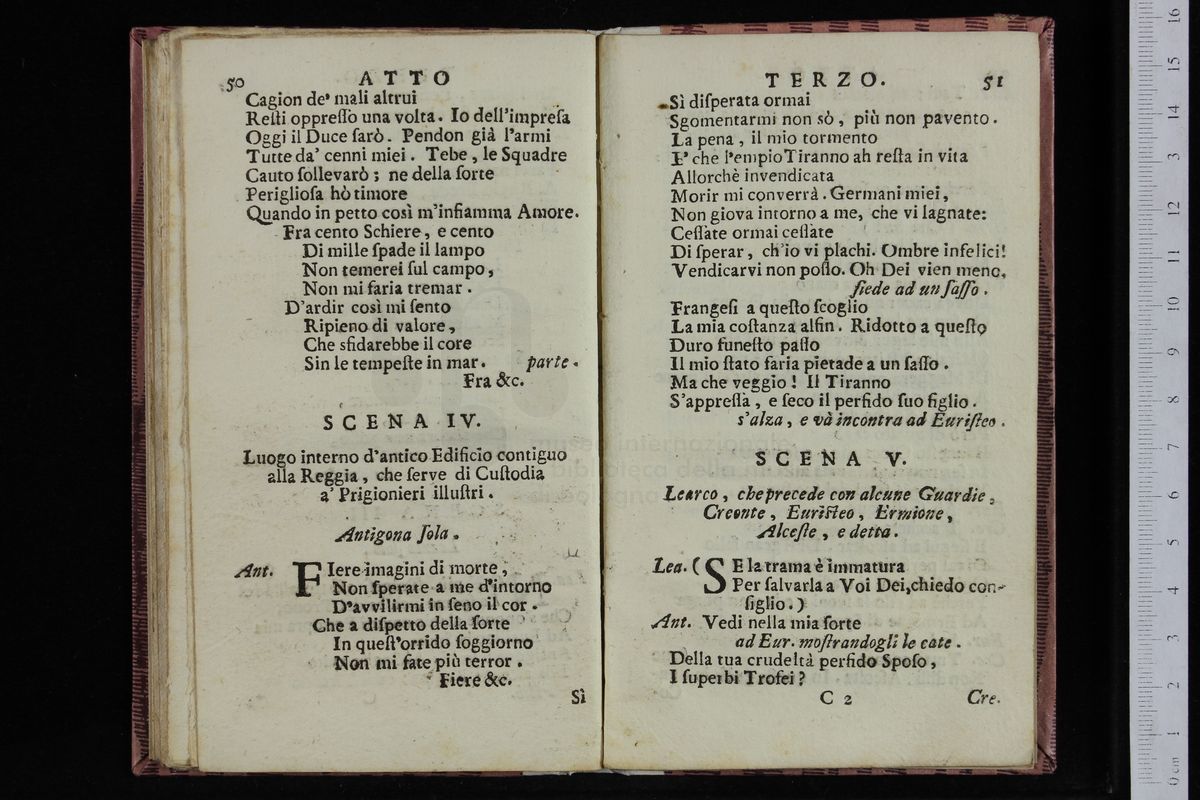 50 ATTO
Cagion de' mali altrui
Reſti oppreſſo una volta. Io dell'impreſa
Oggi il Duce ſarò. Pendon già l'armi
Tutte da' cenni miei. Tebe, le Squadre
Cauto ſollevarò; ne della ſorte
Periglioſa hò timore
Quando in petto così m'infiamma Amore.
Fra cento Schiere, e cento
Di mille ſpade il lampo
Non temerei ſul campo,
Non mi faria tremar.
D'ardir così mi ſento
Ripieno di valore,
Che sfidarebbe il core
Sin le tempeſte in mar. parte.
Fra &c.
SCENA IV.
Luogo interno d'antico Edificio contiguo
alla Reggia, che ſerve di Cuſtodia
a' Prigionieri illuſtri.
Antigona ſola.
Ant. FIere imagini di morte,
Non ſperate a me d'intorno
D'avvilirmi in ſeno il cor.
Che a diſpetto della ſorte
In queſt'orrido ſoggiorno
Non mi fate più terror.
Fiere &c.
Sì
TERZO. 51
Sì diſperata ormai
Sgomentarmi non sò, più non pavento.
La pena, il mio tormento
E' che l'empio Tiranno ah reſta in vita
Allorchè invendicata
Morir mi converrà. Germani miei,
Non giova intorno a me, che vi lagnate:
Ceſſate ormai ceſſate
Di ſperar, ch'io vi plachi. Ombre infelici!
Vendicarvi non poſſo. Oh Dei vien meno,
ſiede ad un ſaſſo.
Frangeſi a queſto ſcoglio
La mia coſtanza alfin. Ridotto a queſto
Duro funeſto paſſo
Il mio ſtato faria pietade a un ſaſſo.
Ma che veggio! Il Tiranno
S'appreſſa, e ſeco il perfido ſuo figlio.
s'alza, e và incontra ad Euriſteo.
SCENA V.
Learco, che precede con alcune Guardie,
Creonte, Euriſteo, Ermione,
Alceſte, e detta.
Lea. (SE la trama è immatura
Per ſalvarla a Voi Dei, chiedo con-
ſiglio.)
Ant. Vedi nella mia ſorte
ad Eur. moſtrandogli le cate.
Della tua crudeltà perfido Spoſo,
I ſuperbi Trofei?
C 2 Cre.
museo internazionale
biblioteca della musica
di bologna
16
15
14
13
12
11
10
9
8
7
6
5
4
3
2
1
0 cm